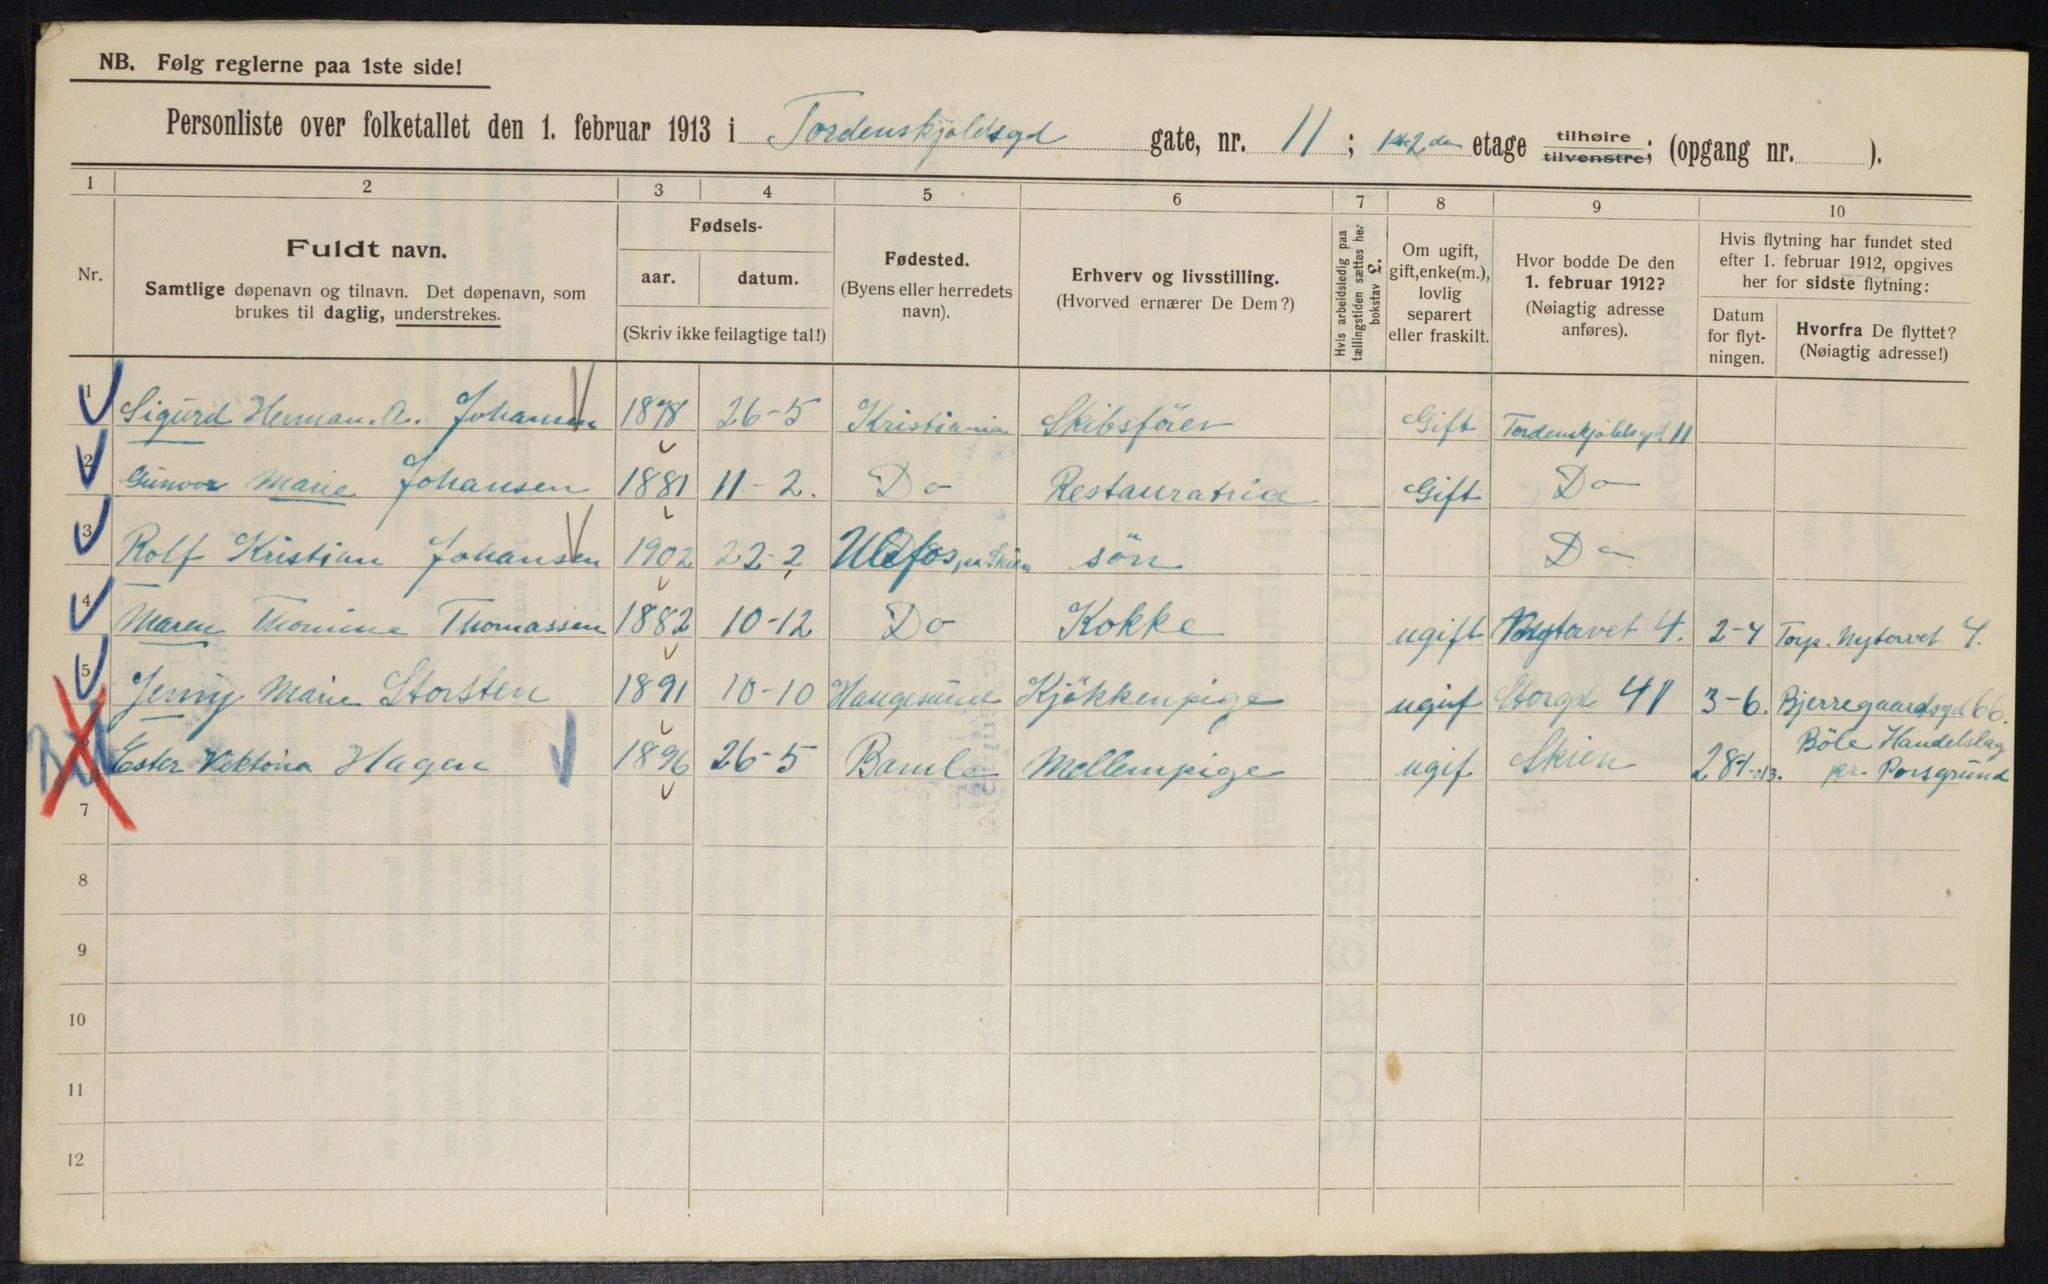 NB. Følg reglerne paa 1ste side!
Personliste over folketallet den 1. februar 1913 i Tordenskjoldsgd gate, nr. 11; 1 & 2 den etage tilhøire tilvenstre; (opgang nr. ).
1 2 3 4 5 6 7 8 9 10
Nr.
Fuldt navn.
Samtlige døpenavn og tilnavn. Det døpenavn, som
brukes til daglig, understrekes.
Fødsels-
aar. datum.
(Skriv ikke feilagtige tal!)
Fødested.
(Byens eller herredets
navn).
Erhverv og livsstilling.
(Hvorved ernærer De Dem?)
Hvis arbeidsledig paa
tællingstiden sættes her
bokstav L.
Om ugift,
gift, enke(m.),
lovlig
separert
eller fraskilt.
Hvor bodde De den
1. februar 1912?
(Nøiagtig adresse
anføres).
Hvis flytning har fundet sted
efter 1. februar 1912, opgives
her for sidste flytning:
Datum
for flyt-
ningen.
Hvorfra De flyttet?
(Nøiagtig adresse!)
1 Sigurd Herman. A. Johansen 1878 26-5 Kristiania Skibsförer Gift Tordenskjoldsgd 11
2 Gunvor Marie Johansen 1881 11-2. Do Restauratrice Gift Do
3 Rolf Kristian Johansen 1902 22-2 Ulefos pr. Skien sön Do
4 Maren Thomine Thomassen 1882 10-12 Do Kokke ugift Nytorvet 4. 2-4 Torp. Nytorvet 4.
5 Jenny Marie Storsten 1891 10-10 Haugesund Kjökkenpige ugif Storgd 41 3-6. Bjerregaardsgd 66.
6 Ester Viktoria Hagen 1896 26-5 Bamle Mellempige ugif Skien 28-1-013. Böle Handelslag
pr. Porsgrund
7
8
9
10
11
12